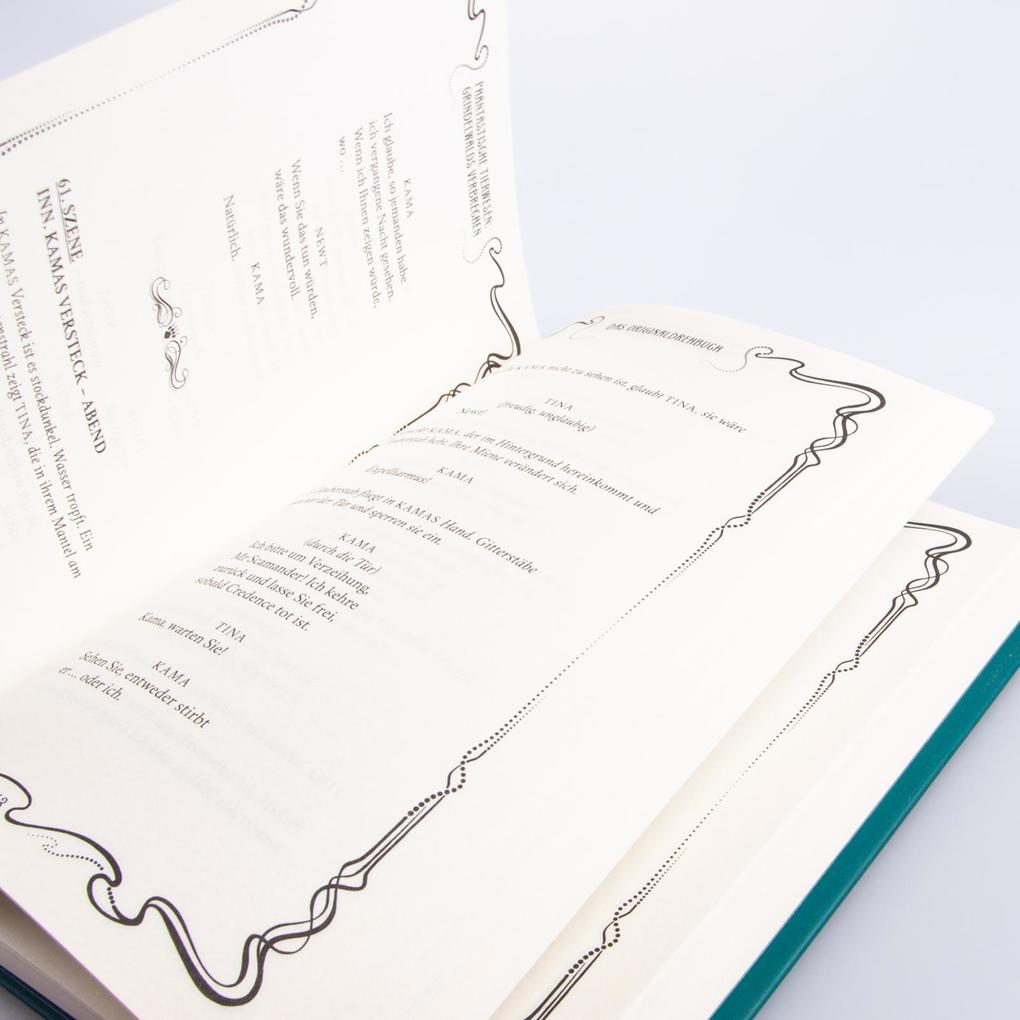 PHANTASTISCHE TIERWESEN
GRINDELWALDS VERBRECHEN
KAMA
Ich glaube, so jemanden habe
ich vergangene Nacht gesehen.
Wenn ich Ihnen zeigen würde,
wo …
NEWT
Wenn Sie das tun würden,
wäre das wundervoll.
KAMA
Natürlich.
61. SZENE
INN. KAMAS VERSTECK – ABEND
In KAMAS Versteck ist es stockdunkel. Wasser tropft. Ein
zeigt TINA, die in ihrem Mantel am
DAS ORIGINALDREHBUCH
KAMA nicht zu sehen ist, glaubt TINA, sie wäre
TINA
(freudig, ungläubig)
Newt!
KAMA, der im Hintergrund hereinkommt und
hebt. Ihre Miene verändert sich.
KAMA
Expelliarmus!
Zauberstab fliegt in KAMAS Hand. Gitterstäbe
der Tür und sperren sie ein.
KAMA
(durch die Tür)
Ich bitte um Verzeihung,
Mr Scamander! Ich kehre
zurück und lasse Sie frei,
sobald Credence tot ist.
TINA
Kama, warten Sie!
KAMA
Sehen Sie, entweder stirbt
er … oder ich.